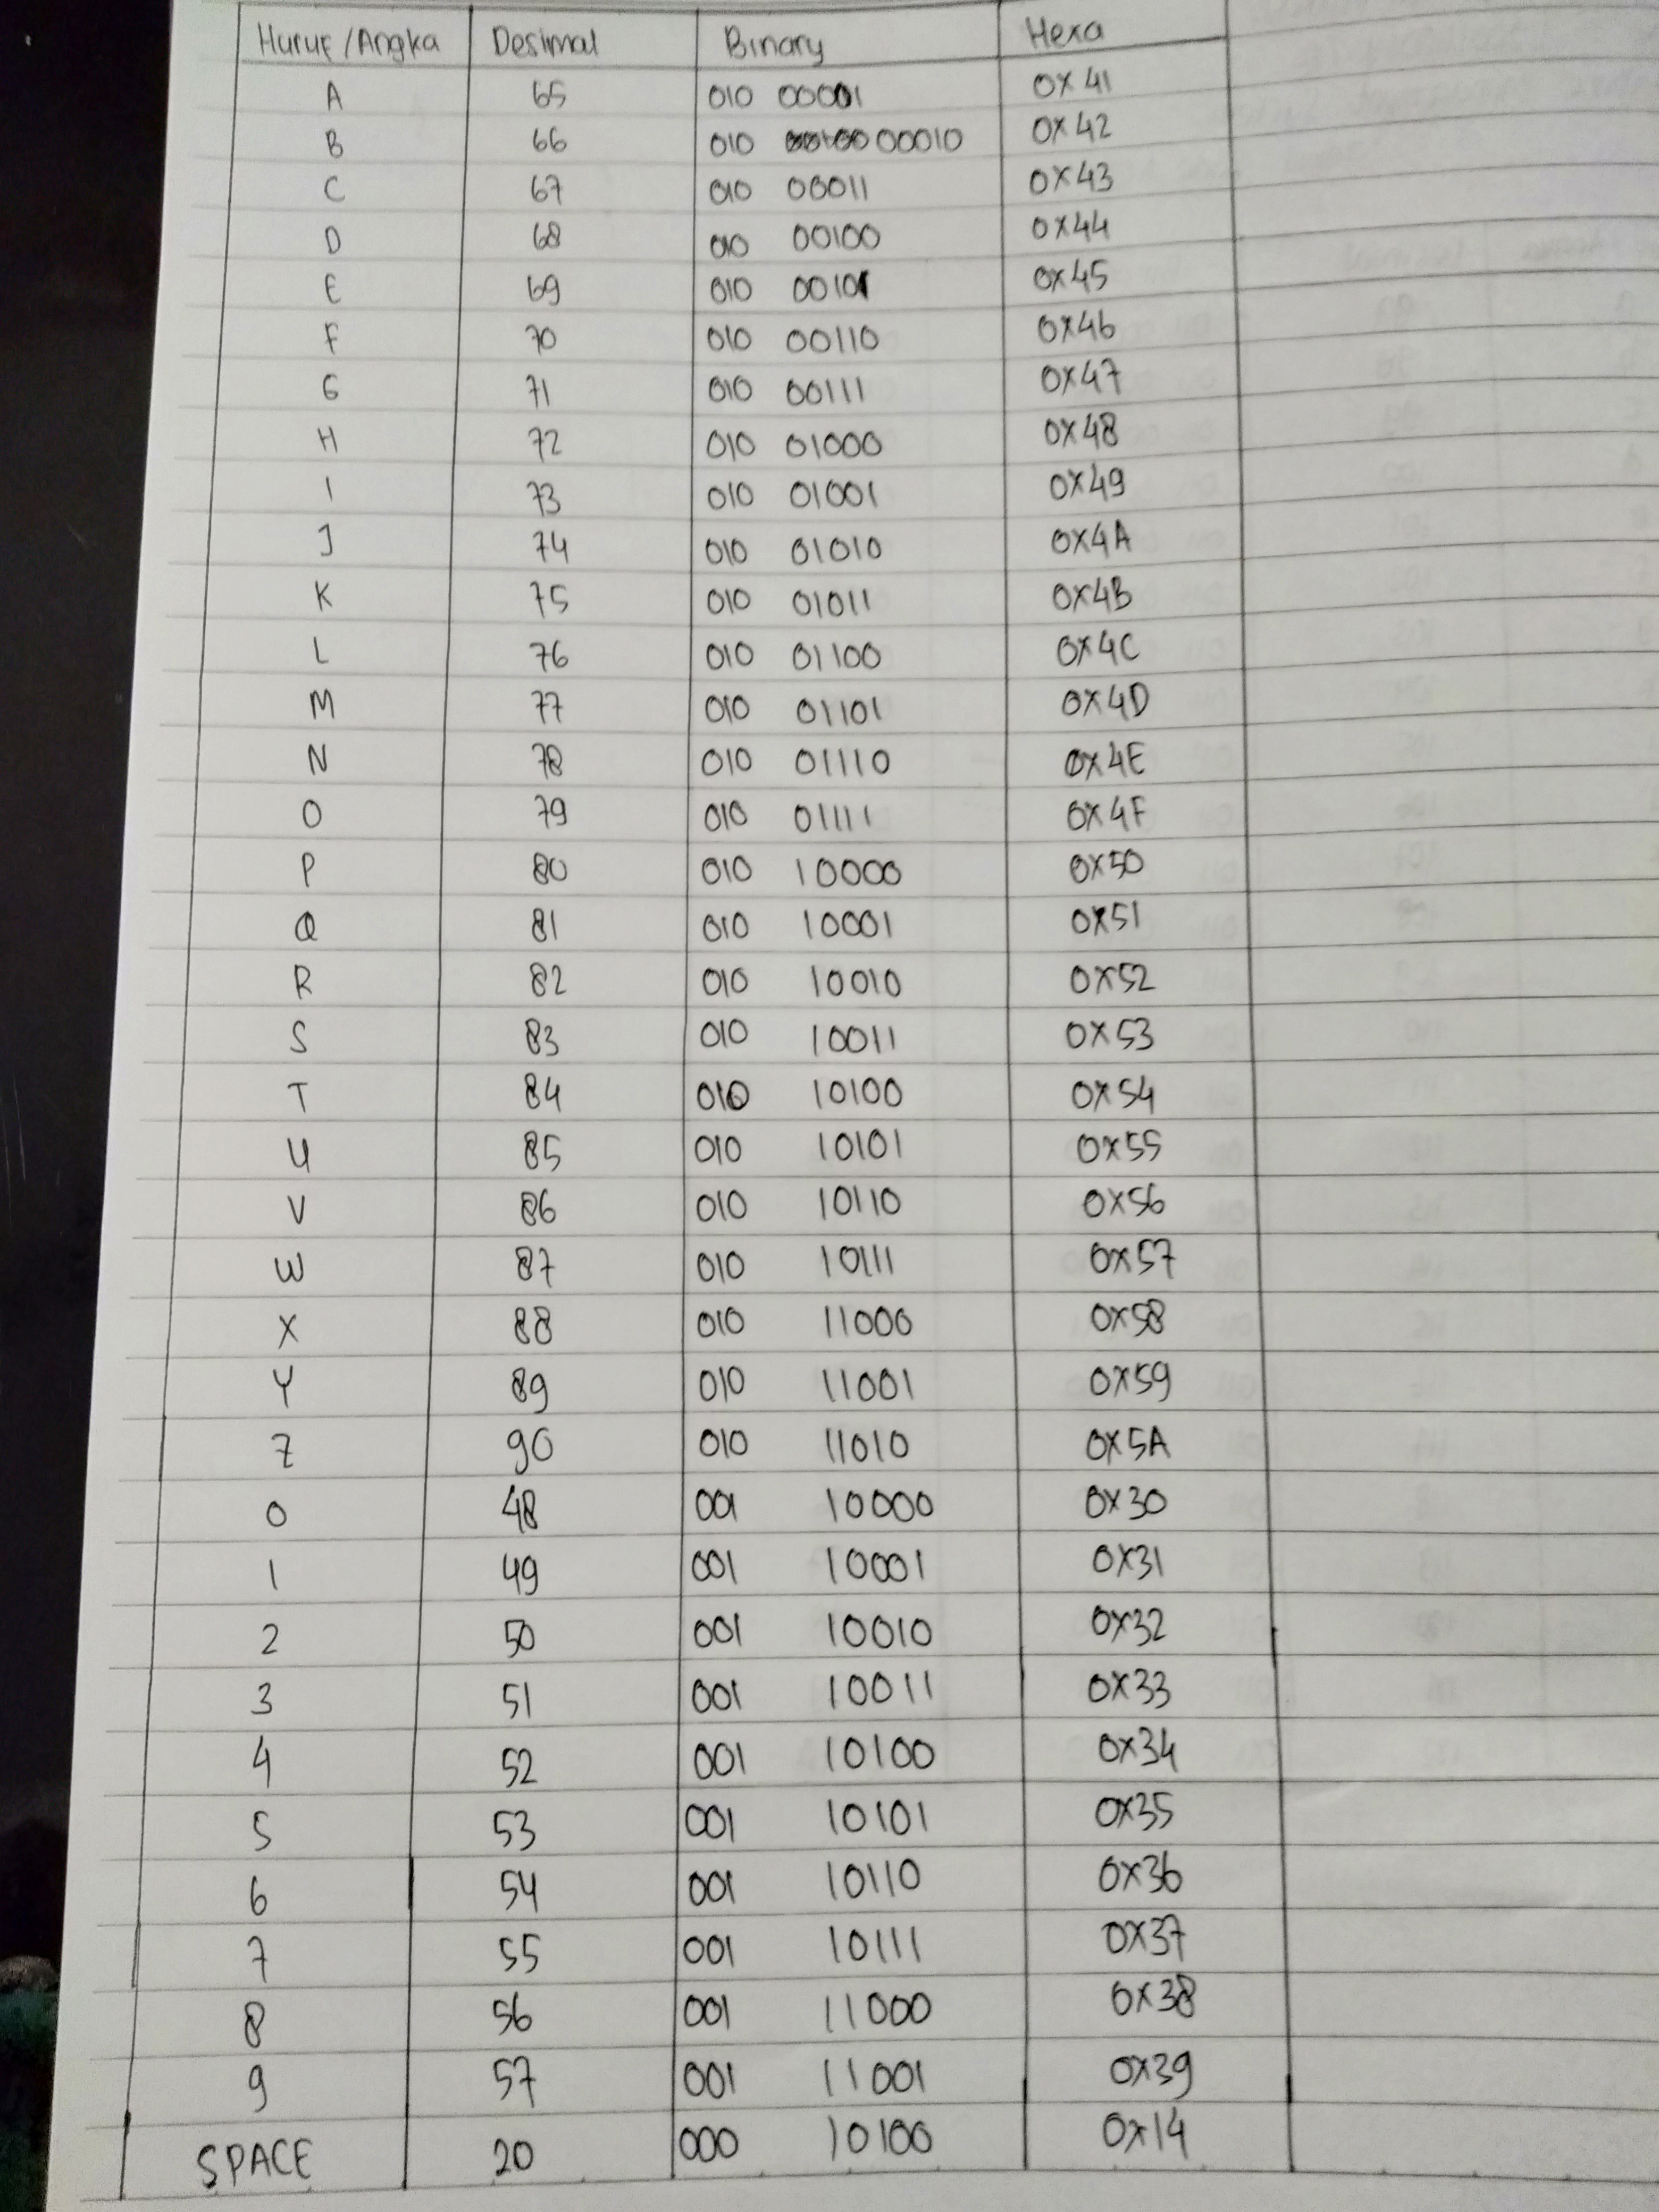 Huruf/Angka Desimal Binary Hexa
A 65 010 00001 0x41
B 66 010 00010 0x42
C 67 010 00011 0x43
D 68 010 00100 0x44
E 69 010 00101 0x45
F 70 010 00110 0x46
G 71 010 00111 0x47
H 72 010 01000 0x48
I 73 010 01001 0x49
J 74 010 01010 0x4A
K 75 010 01011 0x4B
L 76 010 01100 0x4C
M 77 010 01101 0x4D
N 78 010 01110 0x4E
O 79 010 01111 0x4F
P 80 010 10000 0x50
Q 81 010 10001 0x51
R 82 010 10010 0x52
S 83 010 10011 0x53
T 84 010 10100 0x54
U 85 010 10101 0x55
V 86 010 10110 0x56
W 87 010 10111 0x57
X 88 010 11000 0x58
Y 89 010 11001 0x59
Z 90 010 11010 0x5A
0 48 001 10000 0x30
1 49 001 10001 0x31
2 50 001 10010 0x32
3 51 001 10011 0x33
4 52 001 10100 0x34
5 53 001 10101 0x35
6 54 001 10110 0x36
7 55 001 10111 0x37
8 56 001 11000 0x38
9 57 001 11001 0x39
SPACE 20 000 10100 0x14